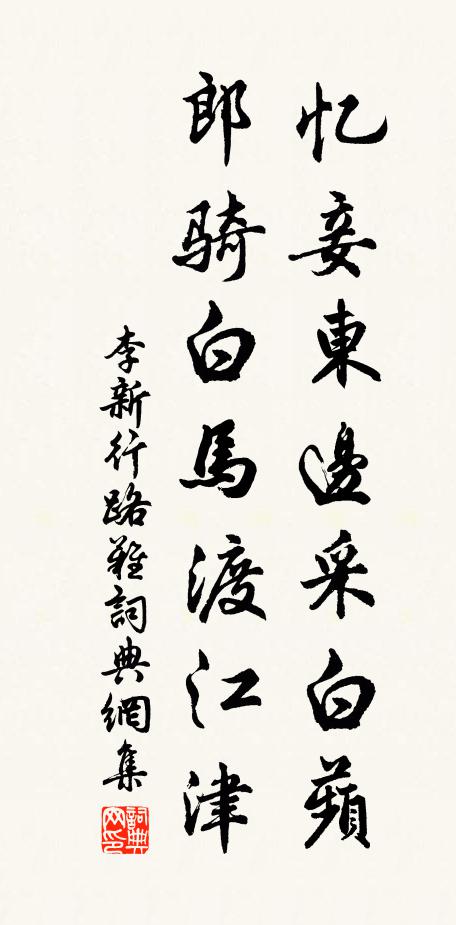 忆妾東邊采白蘋
郎騎白馬渡江津
李新行路難詞典網集
詞典网印